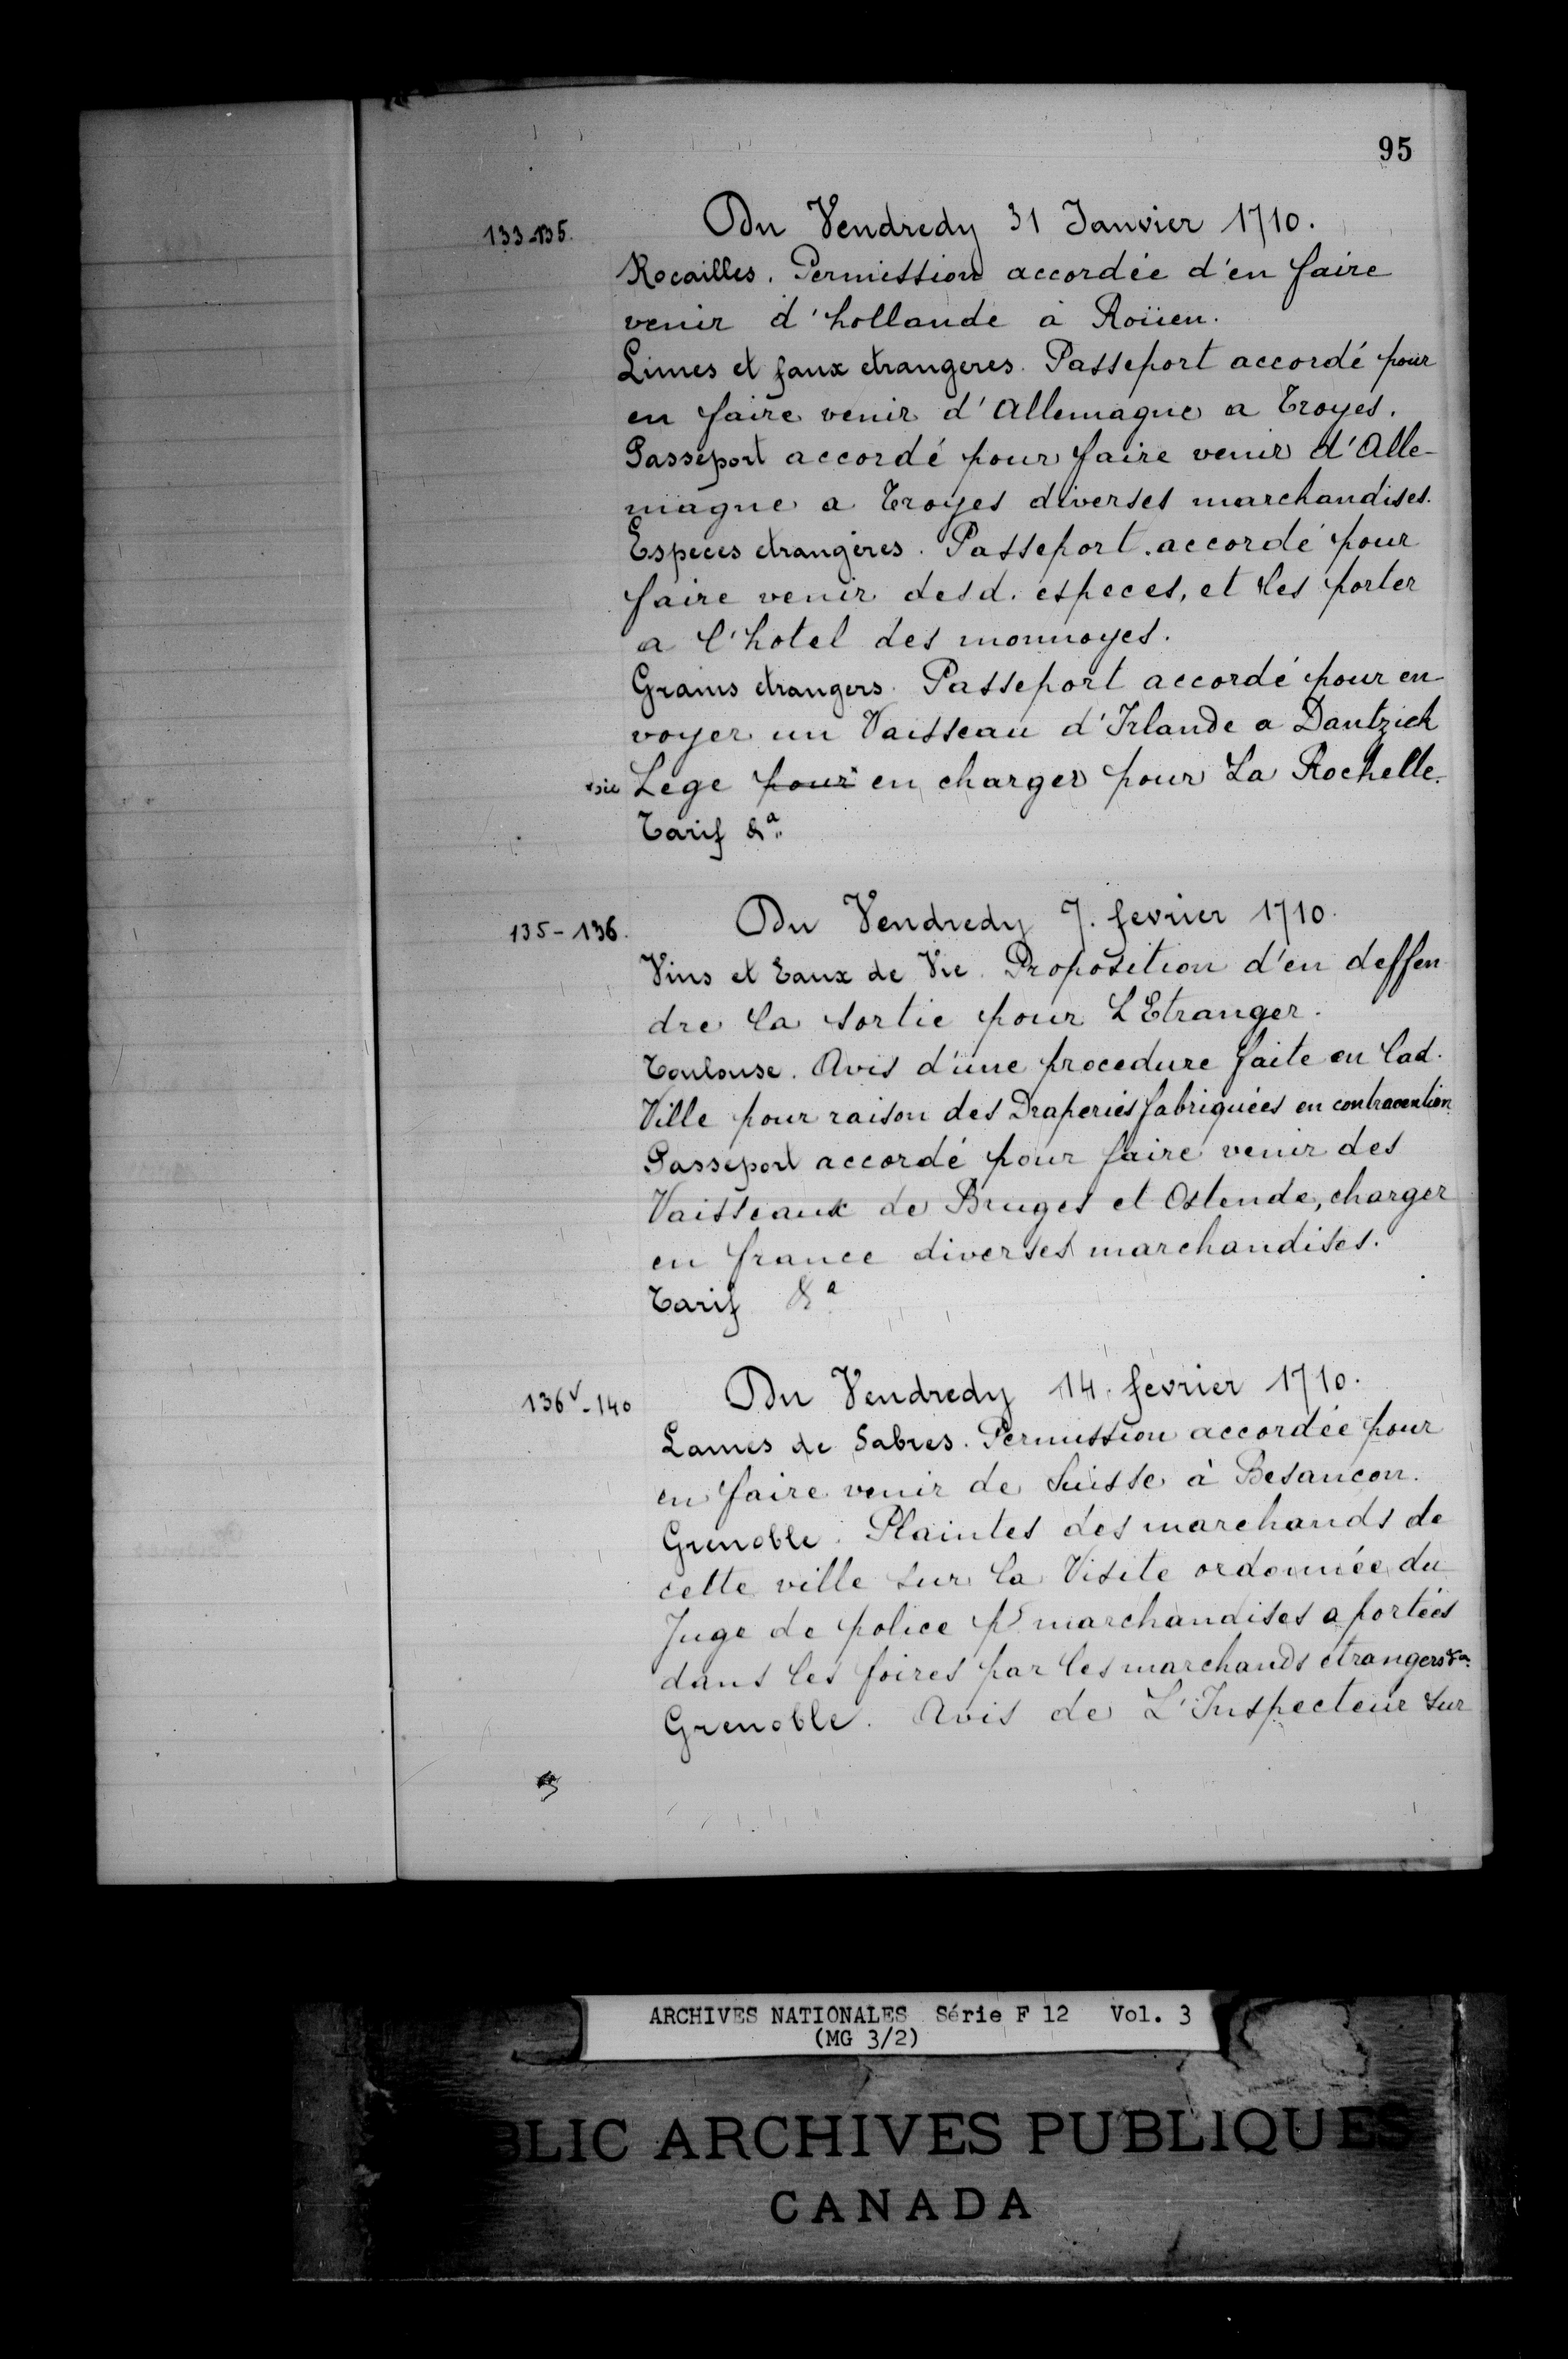 95
133-135. Du Vendredy 31 Janvier 1710.
Rocailles. Permission accordée d'en faire
venir d'hollande à Roüen.
Limes et faux etrangeres. Passeport accordé pour
en faire venir d'Allemagne a Troyes.
Passeport accordé pour faire venir d'Alle-
magne a Troyes diverses marchandises.
Especes etrangères. Passeport accordé pour
faire venir desd. especes, et les porter
a l'hotel des monnoyes.
Grains etrangers. Passeport accordé pour en-
voyer un Vaisseau d'Irlande a Dantzick
x sic Lege pour x en charger pour La Rochelle.
Tarif &a.
135-136. Du Vendredy 7. fevrier 1710.
Vins et Eaux de Vie. Proposition d'en deffen-
dre la sortie pour L'Etranger.
Toulouse. Avis d'une procedure faite en lad.
Ville pour raison des Draperies fabriquées en contravention
Passeport accordé pour faire venir des
Vaisseaux de Bruges et Ostende, charger
en france diverses marchandises.
Tarif &a
136v-140 Du Vendredy 14. fevrier 1710.
Lames de Sabres. Permission accordée pour
en faire venir de Suisse à Besancon.
Grenoble. Plaintes des marchands de
cette ville sur la Visite ordonnée du
Juge de police pr marchandises aportées
dans les foires par les marchands etrangers &a.
Grenoble. Avis de L'Inspecteur sur
ARCHIVES NATIONALES Série F 12 Vol. 3
(MG 3/2)
BLIC ARCHIVES PUBLIQUES
CANADA